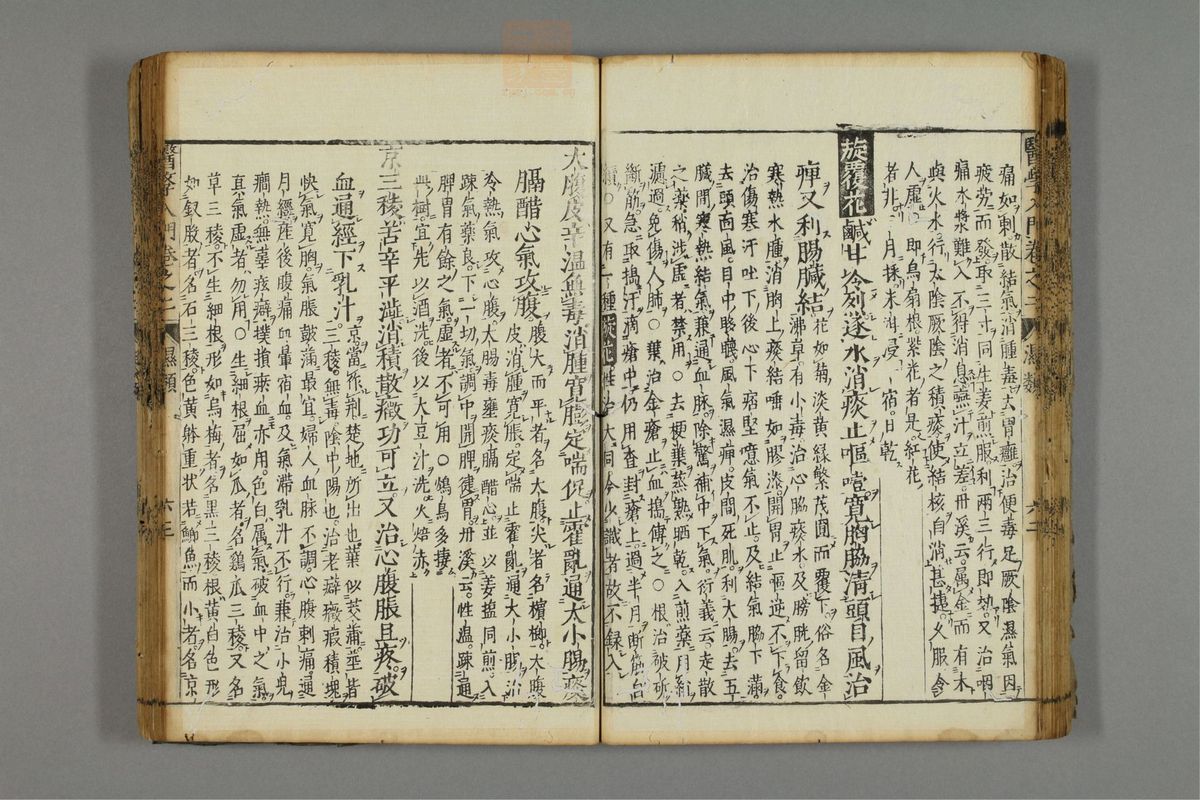 痛如刺散結氣消腫毒太胃癰治便毒足厥陰濕氣因
疲勞而發取三寸同生姜煎服利兩三行即愈又治咽
痛水漿難入不狩消息嚥汁立差丹溪云属金而有木
與火水行太陰厥陰之積痰使結核自消甚捷久服令
人虛即烏扇根紫花者是紅花
者非三月採米泔浸一宿日乾
旋覆花鹹甘冷烈逐水消痰止嘔噎寬胸脇清頭目風治
痹又利腸臓結花如菊淡黄緑繁茂圓而覆下俗名金
沸草有小毒治心脇痰水及膀胱留飲
寒熱水腫消胸上痰結唾如膠漆開胃止嘔逆不下食
治傷寒汗吐下後心下痞堅噫氣不止及結氣脇下滿
去頭面風目中眵䁾風氣濕痹皮間死肌利大腸去五
臓間寒熱結氣兼通血脉除驚補中下氣衍義云走散
之藥稍渉虛者禁用○去梗葉蒸熟晒乾入煎藥用絹
濾過免傷人肺○葉治金瘡止血搗傅之○根治破斫
斷筋急取搗汁滴瘡中仍用査封瘡上過半月斷筋自
續○又有一種旋花性治大同今少識者故不録入
大腹皮辛温無毒消腫寬膨定喘促止霍亂通大小腸痰
膈醋心氣攻腹腹大而平者名大腹尖者名檳榔大腹
皮消腫寛脹定喘止霍亂通大小腸治
冷熱氣攻心腹大腸毒壅痰膈醋心並以姜塩同煎入
踈氣藥良下一切氣調中開脾徤胃丹溪云性温踈通
脾胃有餘之氣虛者不可用○鴆鳥多捿
此樹宜先以酒洗後以大豆汁洗火焙
京三稜苦辛平澁消積散癥功可立又治心腹脹且疼破
血通經下乳汁京當作荆楚地所出也葉似茭蒲並皆
三稜無毒陰中陽也治老癖癥瘕積塊
快氣寛胸氣脹皷滿最宜婦人血脉不調心腹刺痛通
月經産後腹痛血暈宿血及氣滯乳汁不行兼治小兒
癎熱無辜痃癖撲損瘀血亦用色白属氣破血中之氣
眞氣虛者勿用○生細根屈如爪者名鷄爪三稜又名
草三稜不生細根形如烏梅者名黒三稜根黄白色形
如釵股者名石三稜色黄躰重状若鯽魚而小者名京
醫學入門卷之二
濕類
六十